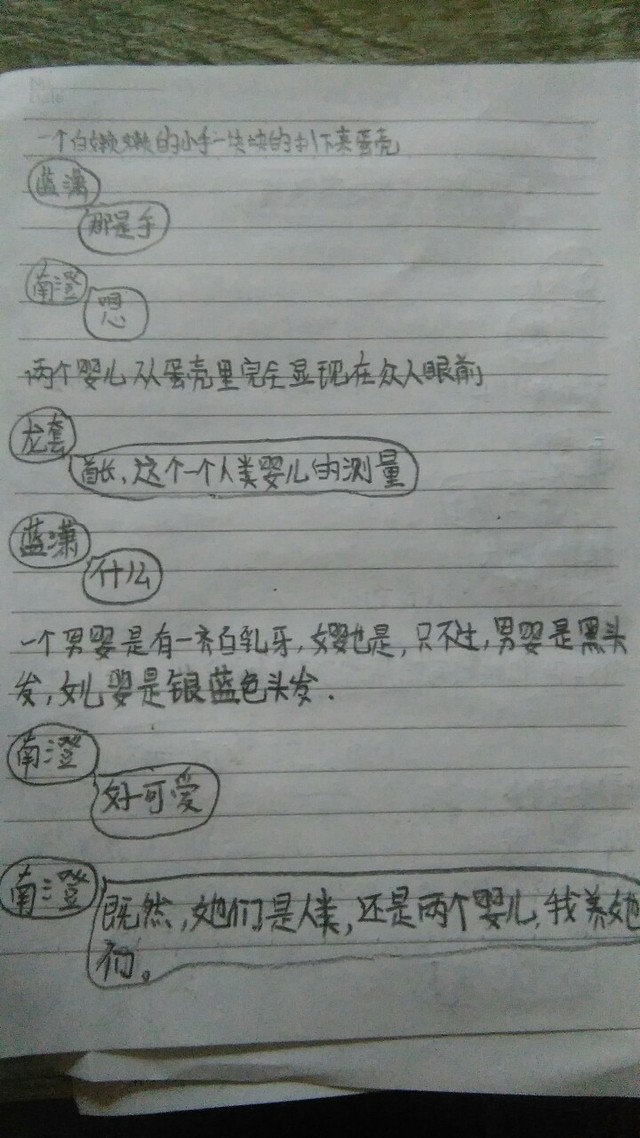 一个白嫩嫩的小手一块块的扒下来蛋壳
蓝潇
那是手
南澄
嗯
两个婴儿从蛋壳里完全显现在众人眼前
龙套
酋长,这个一个人类婴儿的测量
蓝潇
什么
一个男婴是有一齐白乳牙,女婴也是,只不过,男婴是黑头
发,女儿婴是银蓝色头发.
南澄
好可爱
南澄
既然,她们是人类,还是两个婴儿,我养她
们。